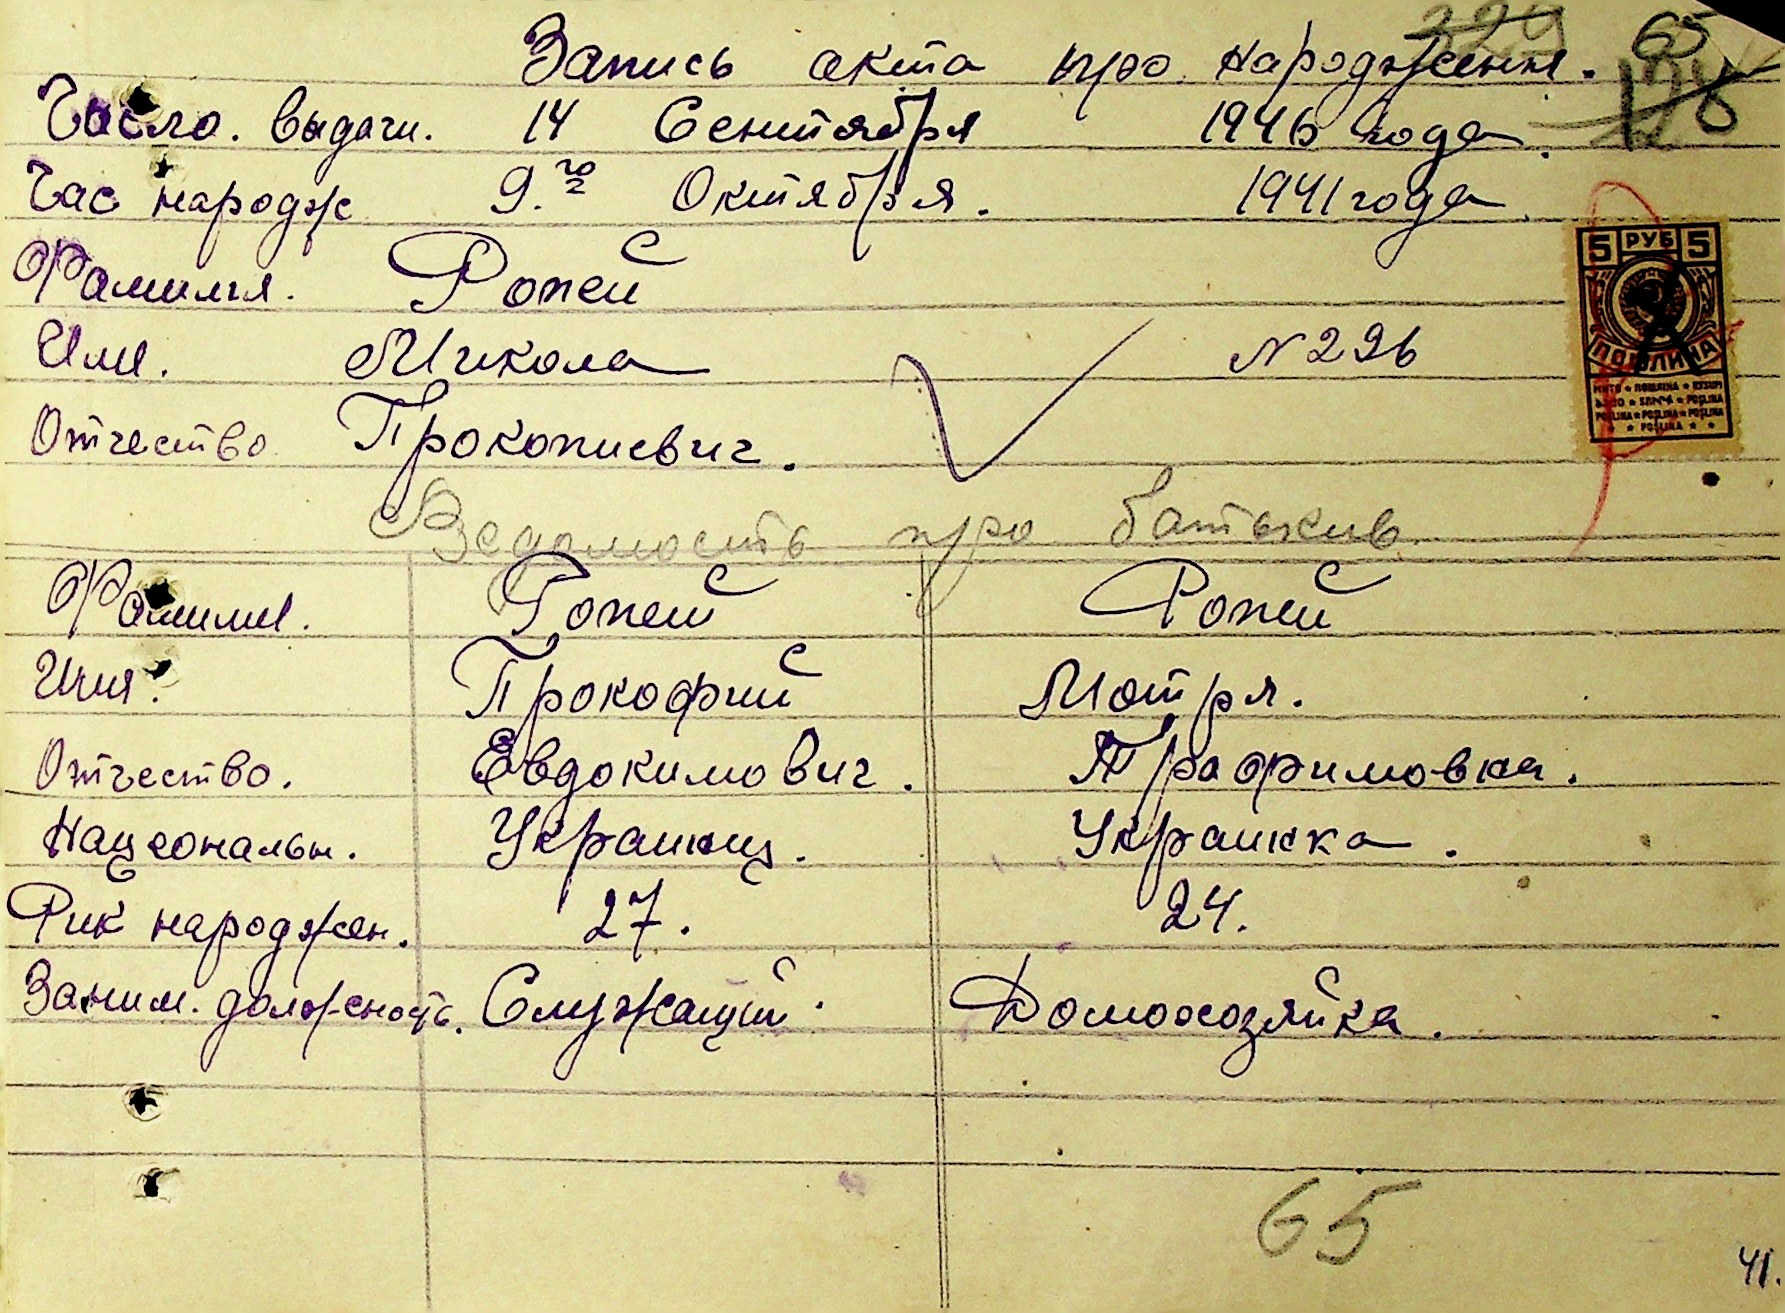 329
65
Запись акта про народження.
178
Число. выдачи. 14 Сентября 1946 года.
Час народж 9.го Октября. 1941 года
Фамилия. Ропей
5 РУБ 5
ПОШЛИНА
Имя. Микола N 296
Отчество Прокопиевич.
Ведомость про батькив
Фамилия. Ропей Ропей
Имя. Прокофий Мотря.
Отчество. Евдокимович. Трафимовна.
Национальн. Украинец. Украинка.
Рик народжен. 27. 24.
Заним. должность. Служащий. Домохозяйка.
65
41.